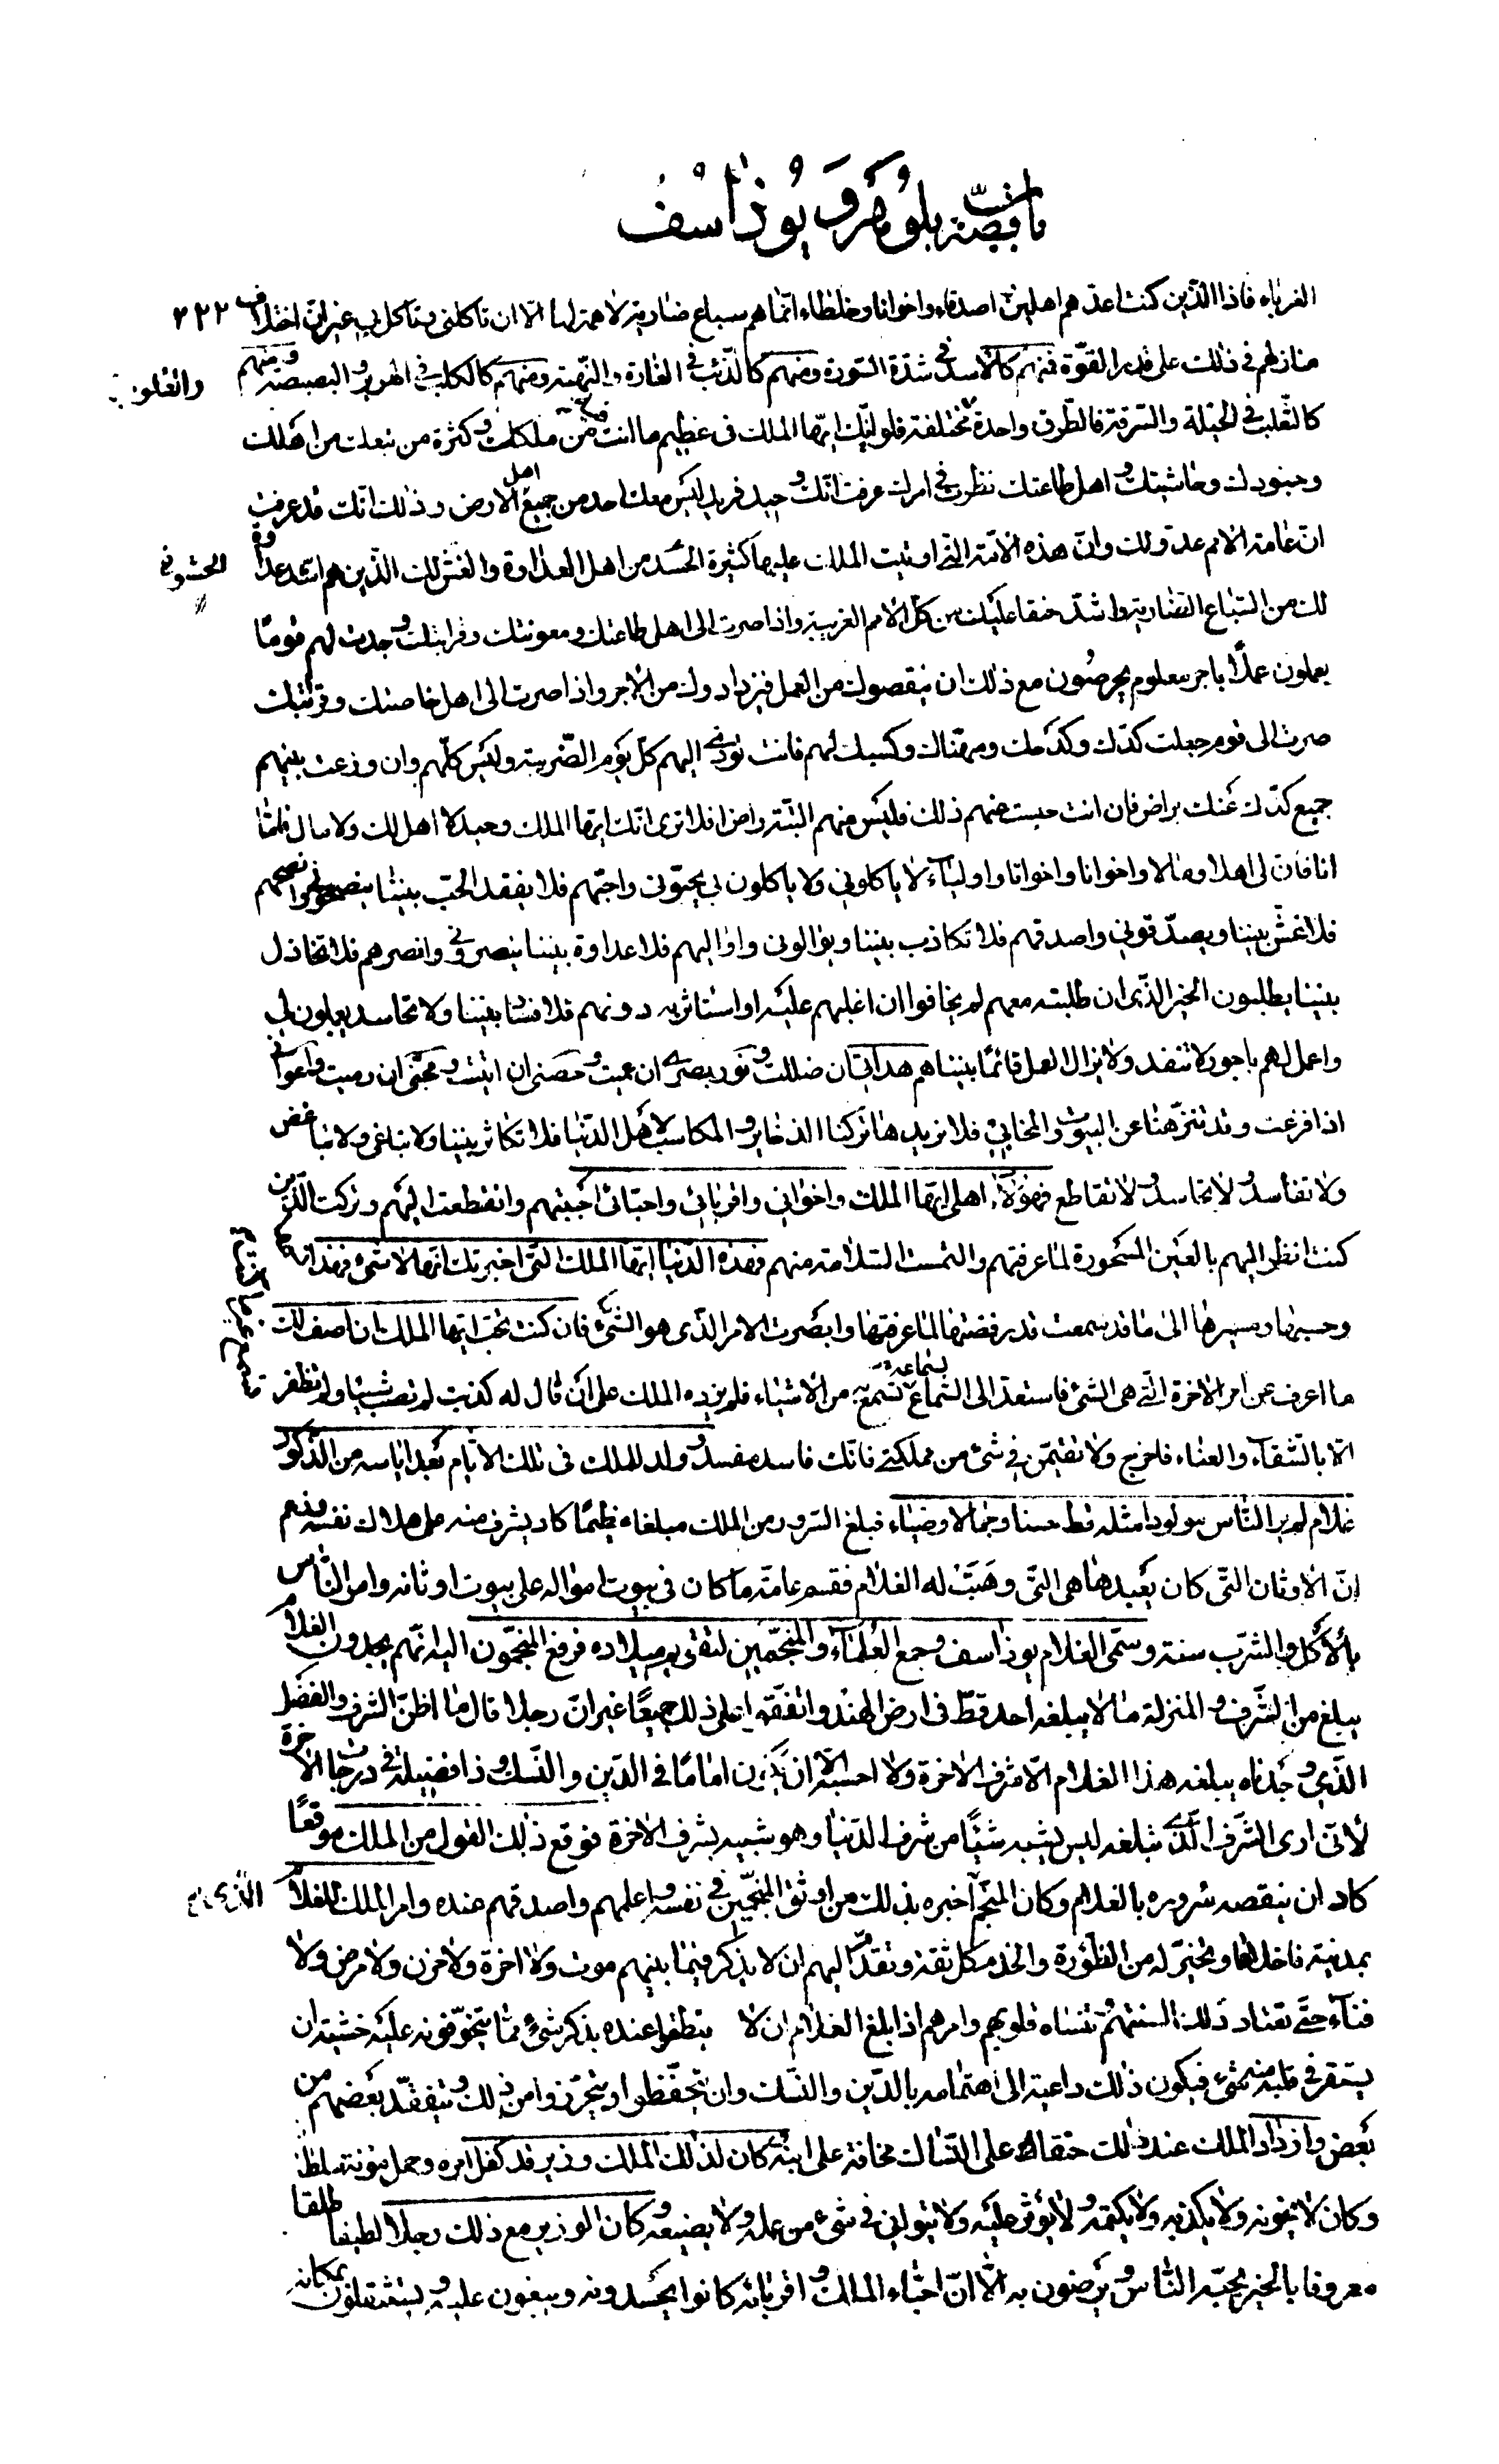 باب قصة بلوهر و يوذاسف
الغرباء فاذا الذين كنت اعدهم اهلين و اصدقاء واخوانا وخلطاء انماهم سباع ضارية لا همة لها الا ان تاكلنى وتاكل بى غير ان اختلاف ٣٢٢
منازلهم فى ذلك على قدر القوة فمنهم كالاسد فى شدة السورة ومنهم كالذئب فى الغارة والنهبة ومنهم كالكلب فى الهرير والبصبصة ومنهم
كالثعلب فى الحيلة والسرقة فالطرق واحدة مختلفة فلو انك ايها الملك فى عظيم ما انت فيه من ملكك وكثرة من تبعك من اهلك
وجنودك وحاشيتك و اهل طاعتك نظرت فى امرك عرفت انك وحيد فريد ليس معك احد من جميع اهل الارض و ذلك انك قد عرفت
ان عامة الامم عدو لك وان هذه الامة التى اوتيت الملك عليها كثيرة الحسد من اهل العداوة والغش لك الذين هم اشد عداوة
لك من السباع الضارية واشد حنقا عليك من كل الامم الغريبة واذا صرت الى اهل طاعتك ومعونتك وقرابتك وجدت لهم قوما
يعملون عملا باجر معلوم يحرصون مع ذلك ان ينقصوك من العمل فيزدادوك من الاجر واذا صرت الى اهل خاصتك وقرابتك
صرت الى قوم جعلت كدك وكدحك ومهناك وكسبك لهم فانت تودى اليهم كل يوم الضريبة وليس كلهم وان وزعت بينهم
جميع كدك عنك براض فان انت حبست عنهم ذلك فليس منهم البتة راض افلا ترى انك ايها الملك وحيد لا اهل لك ولا مال فاما
انا فان لى اهلا ومالا واخوانا واخواتا واولياء لا ياكلونى ولا ياكلون بى يحبونى واحبهم فلا يفقد الحب بيننا ينصحونى وانصحهم
فلا غش بيننا ويصدقونى واصدقهم فلا تكاذب بيننا ويوالونى واواليهم فلا عداوة بيننا ينصرونى وانصرهم فلا تخاذل
بيننا يطلبون الخير الذى ان طلبته معهم لم يخافوا ان اغلبهم عليه او استاثر به دونهم فلا فساد بيننا ولا تحاسد يعملون لى
واعمل لهم باجور لا تنفد ولا يزال العمل قائما بيننا هم هداتى ان ضللت و نور بصرى ان عميت و حصنى ان اتيت و مجنى ان رميت واعوانى
اذا فزعت وقد تنزهنا عن البيوت والمخابى فلا نريدها تركنا الذخاير والمكاسب لاهل الدنيا فلا تكاثر بيننا ولا تباغى ولا تباغض
ولا تفاسد ولا تحاسد ولا تقاطع فهؤلاء اهلى ايها الملك واخوانى واقربائى واحبائى احببتهم وانقطعت اليهم وتركت الذين
كنت انظر اليهم بالعين المسحورة لما عرفتهم والتمست السلامة منهم فهذه الدنيا ايها الملك التى اخبرتك انها لا شىء فهذا نسبها
وحسبها ومسيرها الى ما قد سمعت قد رفضتها لما عرفتها وابصرت الامر الذى هو الشىء فان كنت تحب ايها الملك ان اصف لك
ما اعرف من امر الاخرة التى هى الشىء فاستعد الى السماع تسمع به من الاشياء فلم يزده الملك على ان قال له كذبت لم تصب شيئا ولم تظفر
الا بالشقاء والعناء فاخرج ولا تقيمن فى شىء من مملكتى فانك فاسد مفسد و ولد للملك فى تلك الايام بعد اياسه من الذكور
غلام لم ير الناس مولودا مثله قط حسنا وجمالا وضياء فبلغ السرور من الملك مبلغا عظيما كاد يشرف منه على هلاك نفسه وزعم
ان الاوثان التى كان يعبدها هى التى وهبت له الغلام فقسم عامة ما كان فى بيوت امواله على بيوت اوثانه وامر الناس
بالاكل والشرب سنة وسمى الغلام يوذاسف وجمع العلماء والمنجمين لتقويم ميلاده فرفع المنجمون اليه انهم يجدون الغلام
يبلغ من الشرف و المنزلة ما لا يبلغه احد قط فى ارض الهند واتفقوا على ذلك جميعا غير ان رجلا قال ما اظن الشرف والفضل
الذى وجدناه يبلغه هذا الغلام الا شرف الاخرة ولا احسبه الا ان يكون اماما فى الدين والنسك و ذا فضيلة فى درجات الاخرة
لانى ارى الشرف الذى تبلغه ليس يشبه شيئا من شرف الدنيا وهو شبيه بشرف الاخرة فوقع ذلك القول من الملك موقعا
كاد ان ينقصه سروره بالغلام وكان المنجم الذى اخبره بذلك من اوثق المنجمين فى نفسه واعلمهم واصدقهم عنده وامر الملك للغلام
بمدينة فاخلاها وتخير له من الظؤرة والخدم كل ثقة وتقدم اليهم ان لا يذكر فيما بينهم موت ولا اخرة ولا حزن ولا مرض ولا
فناء حتى تعتاد ذلك السنتهم وتنساه قلوبهم وامرهم اذا بلغ الغلام ان لا ينطقوا عنده بذكر شىء مما يتخوفونه عليه خشية ان
يستقر فى قلبه منه شىء فيكون ذلك داعية الى اهتمامه بالدين والنسك وان يتحفظوا ويتحرزوا من ذلك ويتفقد بعضهم من
بعض وازداد الملك عند ذلك حنقا على النساك مخافة على ابنه كان لذلك الملك وزير قد كفل امره وحمل مونة سلطانه
وكان لا يخونه ولا يكذبه ولا يكتمه ولا يؤثر عليه ولا يتوانى فى شىء من عمله ولا يضيعه وكان الوزير مع ذلك رجلا لطيفا طلقا
معروفا بالخير يحبه الناس ويرضون به الا ان احباء الملك و اقربائه كانوا يحسدونه ويبغون عليه ويستثقلون بمكانه